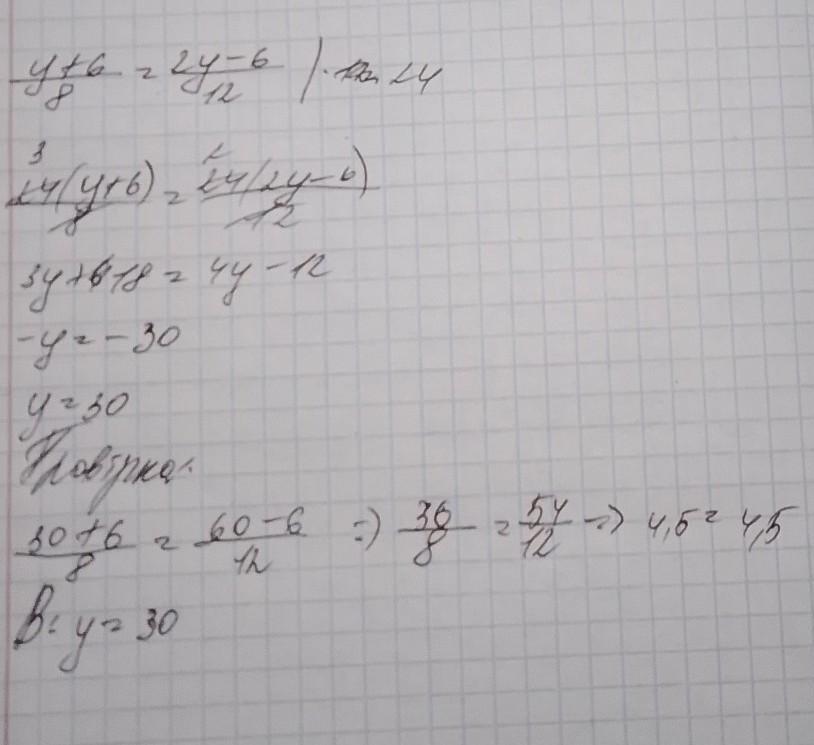 (y+6)/8 = (2y-6)/12 | · 24
3 2
24(y+6)/8 = 24(2y-6)/12
3y+18 = 4y-12
-y = -30
y = 30
Провірка:
(30+6)/8 = (60-6)/12 => 36/8 = 54/12 => 4,5 = 4,5
В: y = 30